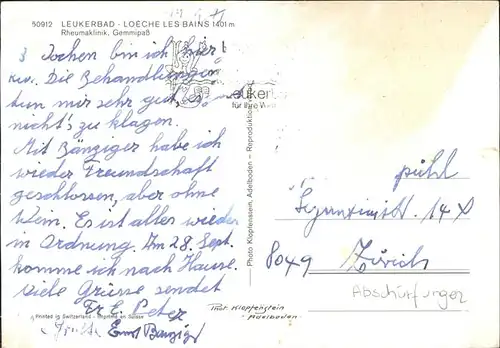 50912 LEUKERBAD - LOÈCHE LES BAINS 1401 m
Rheumaklinik, Gemmipaß
3 Wochen bin ich hier
Die Behandlungen
tun mir sehr gut, es
nicht's zu klagen.
Mit Bänziger habe ich
wieder Freundschaft
geschlossen, aber ohne
Wein. Es ist alles wieder
in Ordnung. Am 28. Sept.
komme ich nach Hause.
viele Grüsse sendet
Fr. E. Peter
Ernst Bänziger
Printed in Switzerland - Imprimé en Suisse
Photo Klopfenstein, Adelboden – Reproduktion
eukerb
für Ihre
pühl
14
8049 Zürich
Abschürfungen
Phot. Klopfenstein
Adelboden